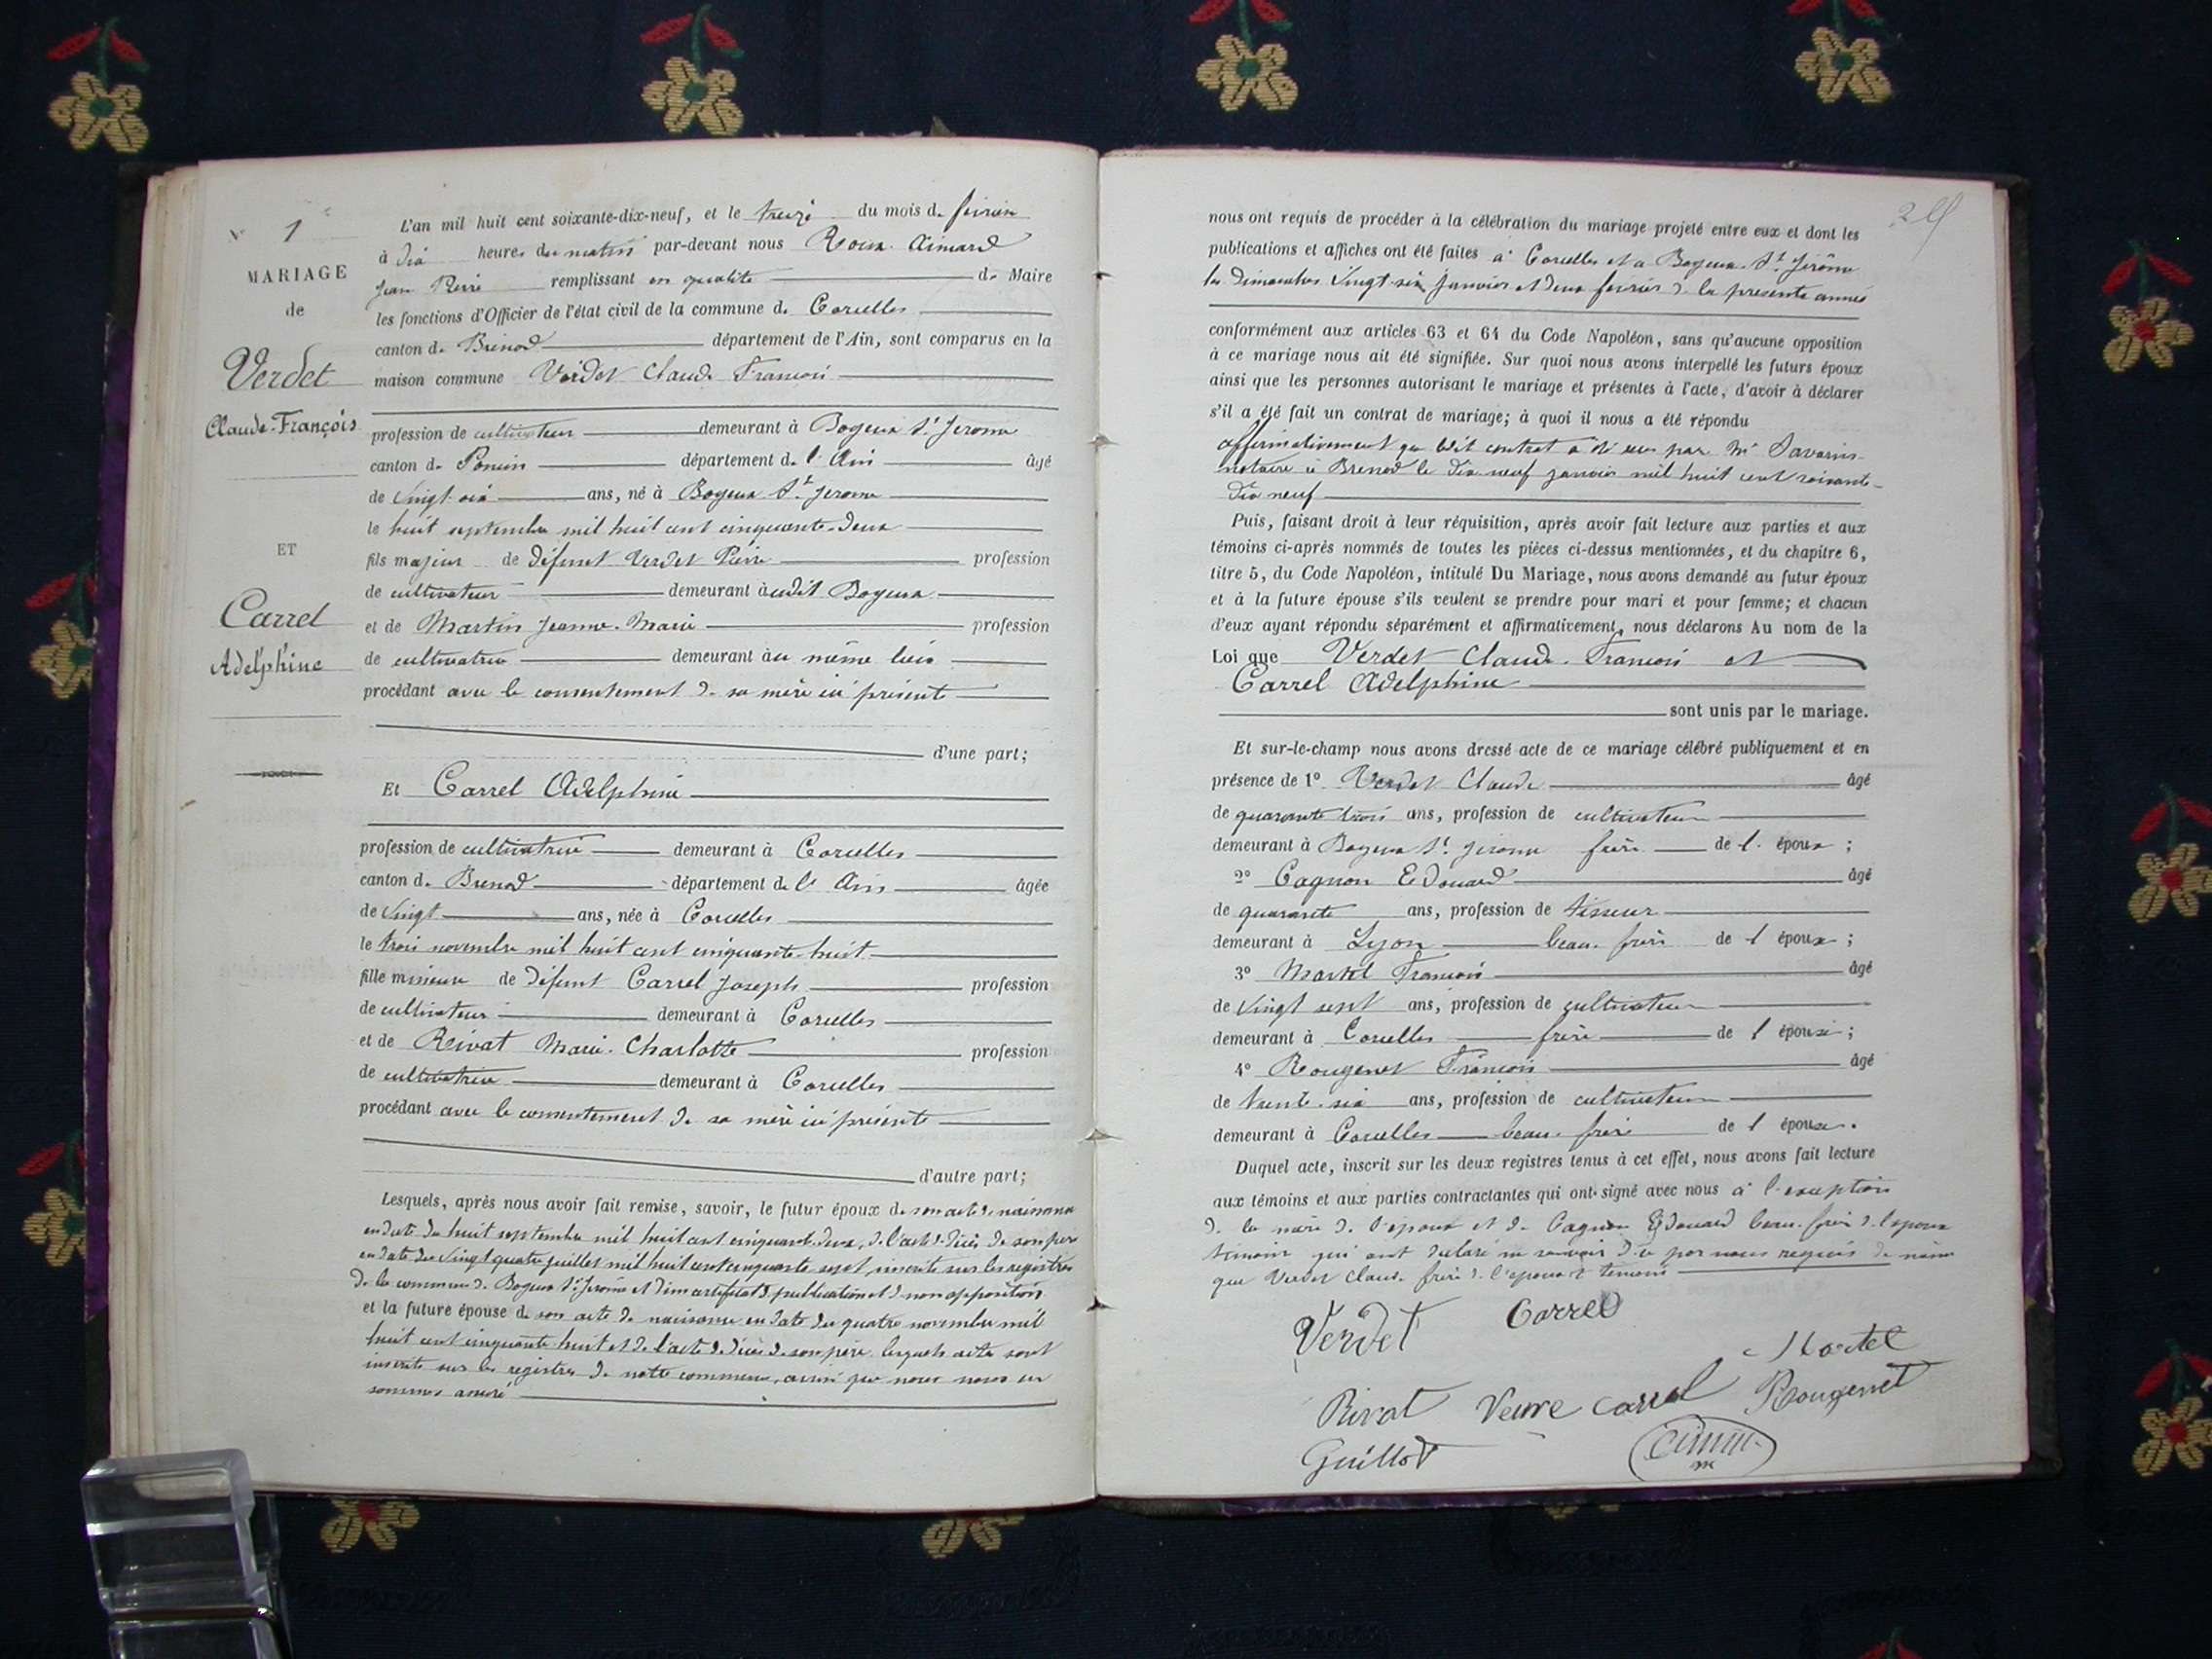 N° 1
MARIAGE
de
Verdet
Claude-François
ET
Carrel
Adelphine
L'an mil huit cent soixante-dix-neuf, et le treize du mois de février
à dix heures du matin par-devant nous Roux Aimard
Jean Pierre remplissant en qualité de Maire
les fonctions d'Officier de l'état civil de la commune de Corcelles
canton de Brénod département de l'Ain, sont comparus en la
maison commune Verdet Claude François
profession de cultivateur demeurant à Boyeux St Jerome
canton de Poncin département de l'Ain âgé
de vingt six ans, né à Boyeux St Jerome
le huit septembre mil huit cent cinquante-deux
fils majeur de défunt Verdet Pierre profession
de cultivateur demeurant à udit Boyeux
et de Martin Jeanne-Marie profession
de cultivatrice demeurant àu même lieu
procédant avec le consentement de sa mère ici présente
d'une part;
Et Carrel Adelphine
profession de cultivatrice demeurant à Corcelles
canton de Brenod département de l'Ain âgée
de vingt ans, née à Corcelles
le trois novembre mil huit cent cinquante-huit
fille mineure de défunt Carrel Joseph profession
de cultivateur demeurant à Corcelles
et de Rivat Marie-Charlotte profession
de cultivatrice demeurant à Corcelles
procédant avec le consentement de sa mère ici présente
d'autre part;
Lesquels, après nous avoir fait remise, savoir, le futur époux de son acte de naissance
en date du huit septembre mil huit cent cinquante-deux, de l'acte de décès de son père
en date du vingt quatre juillet mil huit cent cinquante sept, inscrits sur les registres
de la commune de Boyeux St Jérome et d'un certificat de publication et de non opposition
et la future épouse de son acte de naissance en date du quatre novembre mil
huit cent cinquante huit et de l'acte de décès de son père lesquels actes sont
inscrits sur les registres de notre commune, ainsi que nous nous en
sommes assuré
nous ont requis de procéder à la célébration du mariage projeté entre eux et dont les
publications et affiches ont été faites à Corcelles et à Boyeux-St Jérôme
les dimanches vingt-six janvier et deux février de la présente année
conformément aux articles 63 et 64 du Code Napoléon, sans qu'aucune opposition
à ce mariage nous ait été signifiée. Sur quoi nous avons interpellé les futurs époux
ainsi que les personnes autorisant le mariage et présentes à l'acte, d'avoir à déclarer
s'il a été fait un contrat de mariage; à quoi il nous a été répondu
affirmativement que ledit contrat a été reçu par Me Savarin
notaire à Brenod le dix neuf janvier mil huit cent soixante-
dix neuf
Puis, faisant droit à leur réquisition, après avoir fait lecture aux parties et aux
témoins ci-après nommés de toutes les pièces ci-dessus mentionnées, et du chapitre 6,
titre 5, du Code Napoléon, intitulé Du Mariage, nous avons demandé au futur époux
et à la future épouse s'ils veulent se prendre pour mari et pour femme; et chacun
d'eux ayant répondu séparément et affirmativement, nous déclarons Au nom de la
Loi que Verdet Claude-François et
Carrel Adelphine
sont unis par le mariage.
Et sur-le-champ nous avons dressé acte de ce mariage célébré publiquement et en
présence de 1° Verdet Claude âgé
de quarante trois ans, profession de cultivateur
demeurant à Boyeux St Jerome frère de l'époux ;
2° Cagnon Edouard âgé
de quarante ans, profession de tisseur
demeurant à Lyon beau-frère de l'époux ;
3° Martel François âgé
de vingt sept ans, profession de cultivateur
demeurant à Corcelles frère de l'épouse ;
4° Rougenet François âgé
de trente-six ans, profession de cultivateur
demeurant à Corcelles beau-frère de l'épouse.
Duquel acte, inscrit sur les deux registres tenus à cet effet, nous avons fait lecture
aux témoins et aux parties contractantes qui ont signé avec nous à l'exception
de la mère de l'époux et de Cagnon Edouard beau-frère de l'époux
témoin qui ont déclaré ne savoir de ce par nous requis de même
que Verdet Claude frère de l'époux et témoin
Verdet Carrel
Martel
Rivat Veuve Carrel Rougenet
Guillot